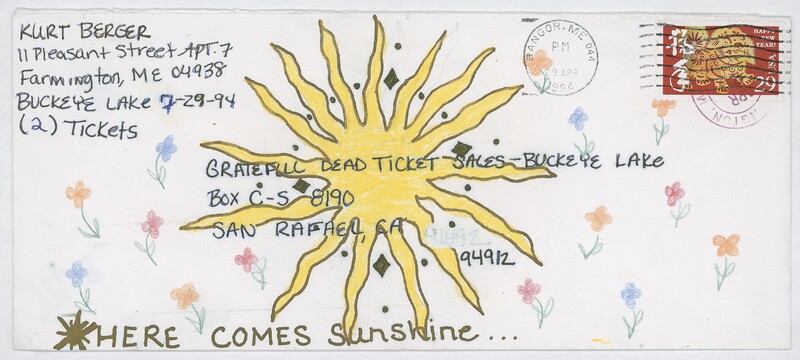 KURT BERGER
11 Pleasant Street APT. 7
Farmington, ME 04938
BUCKEYE LAKE 7-29-94
(2) Tickets
BANGOR, ME 044
PM
APR
1994
HAPPY
NEW
YEAR!
USA
29
GRATEFUL DEAD TICKET SALES-BUCKEYE LAKE
BOX C-S 8190
SAN RAFAEL, CA
94912
HERE COMES Sunshine...